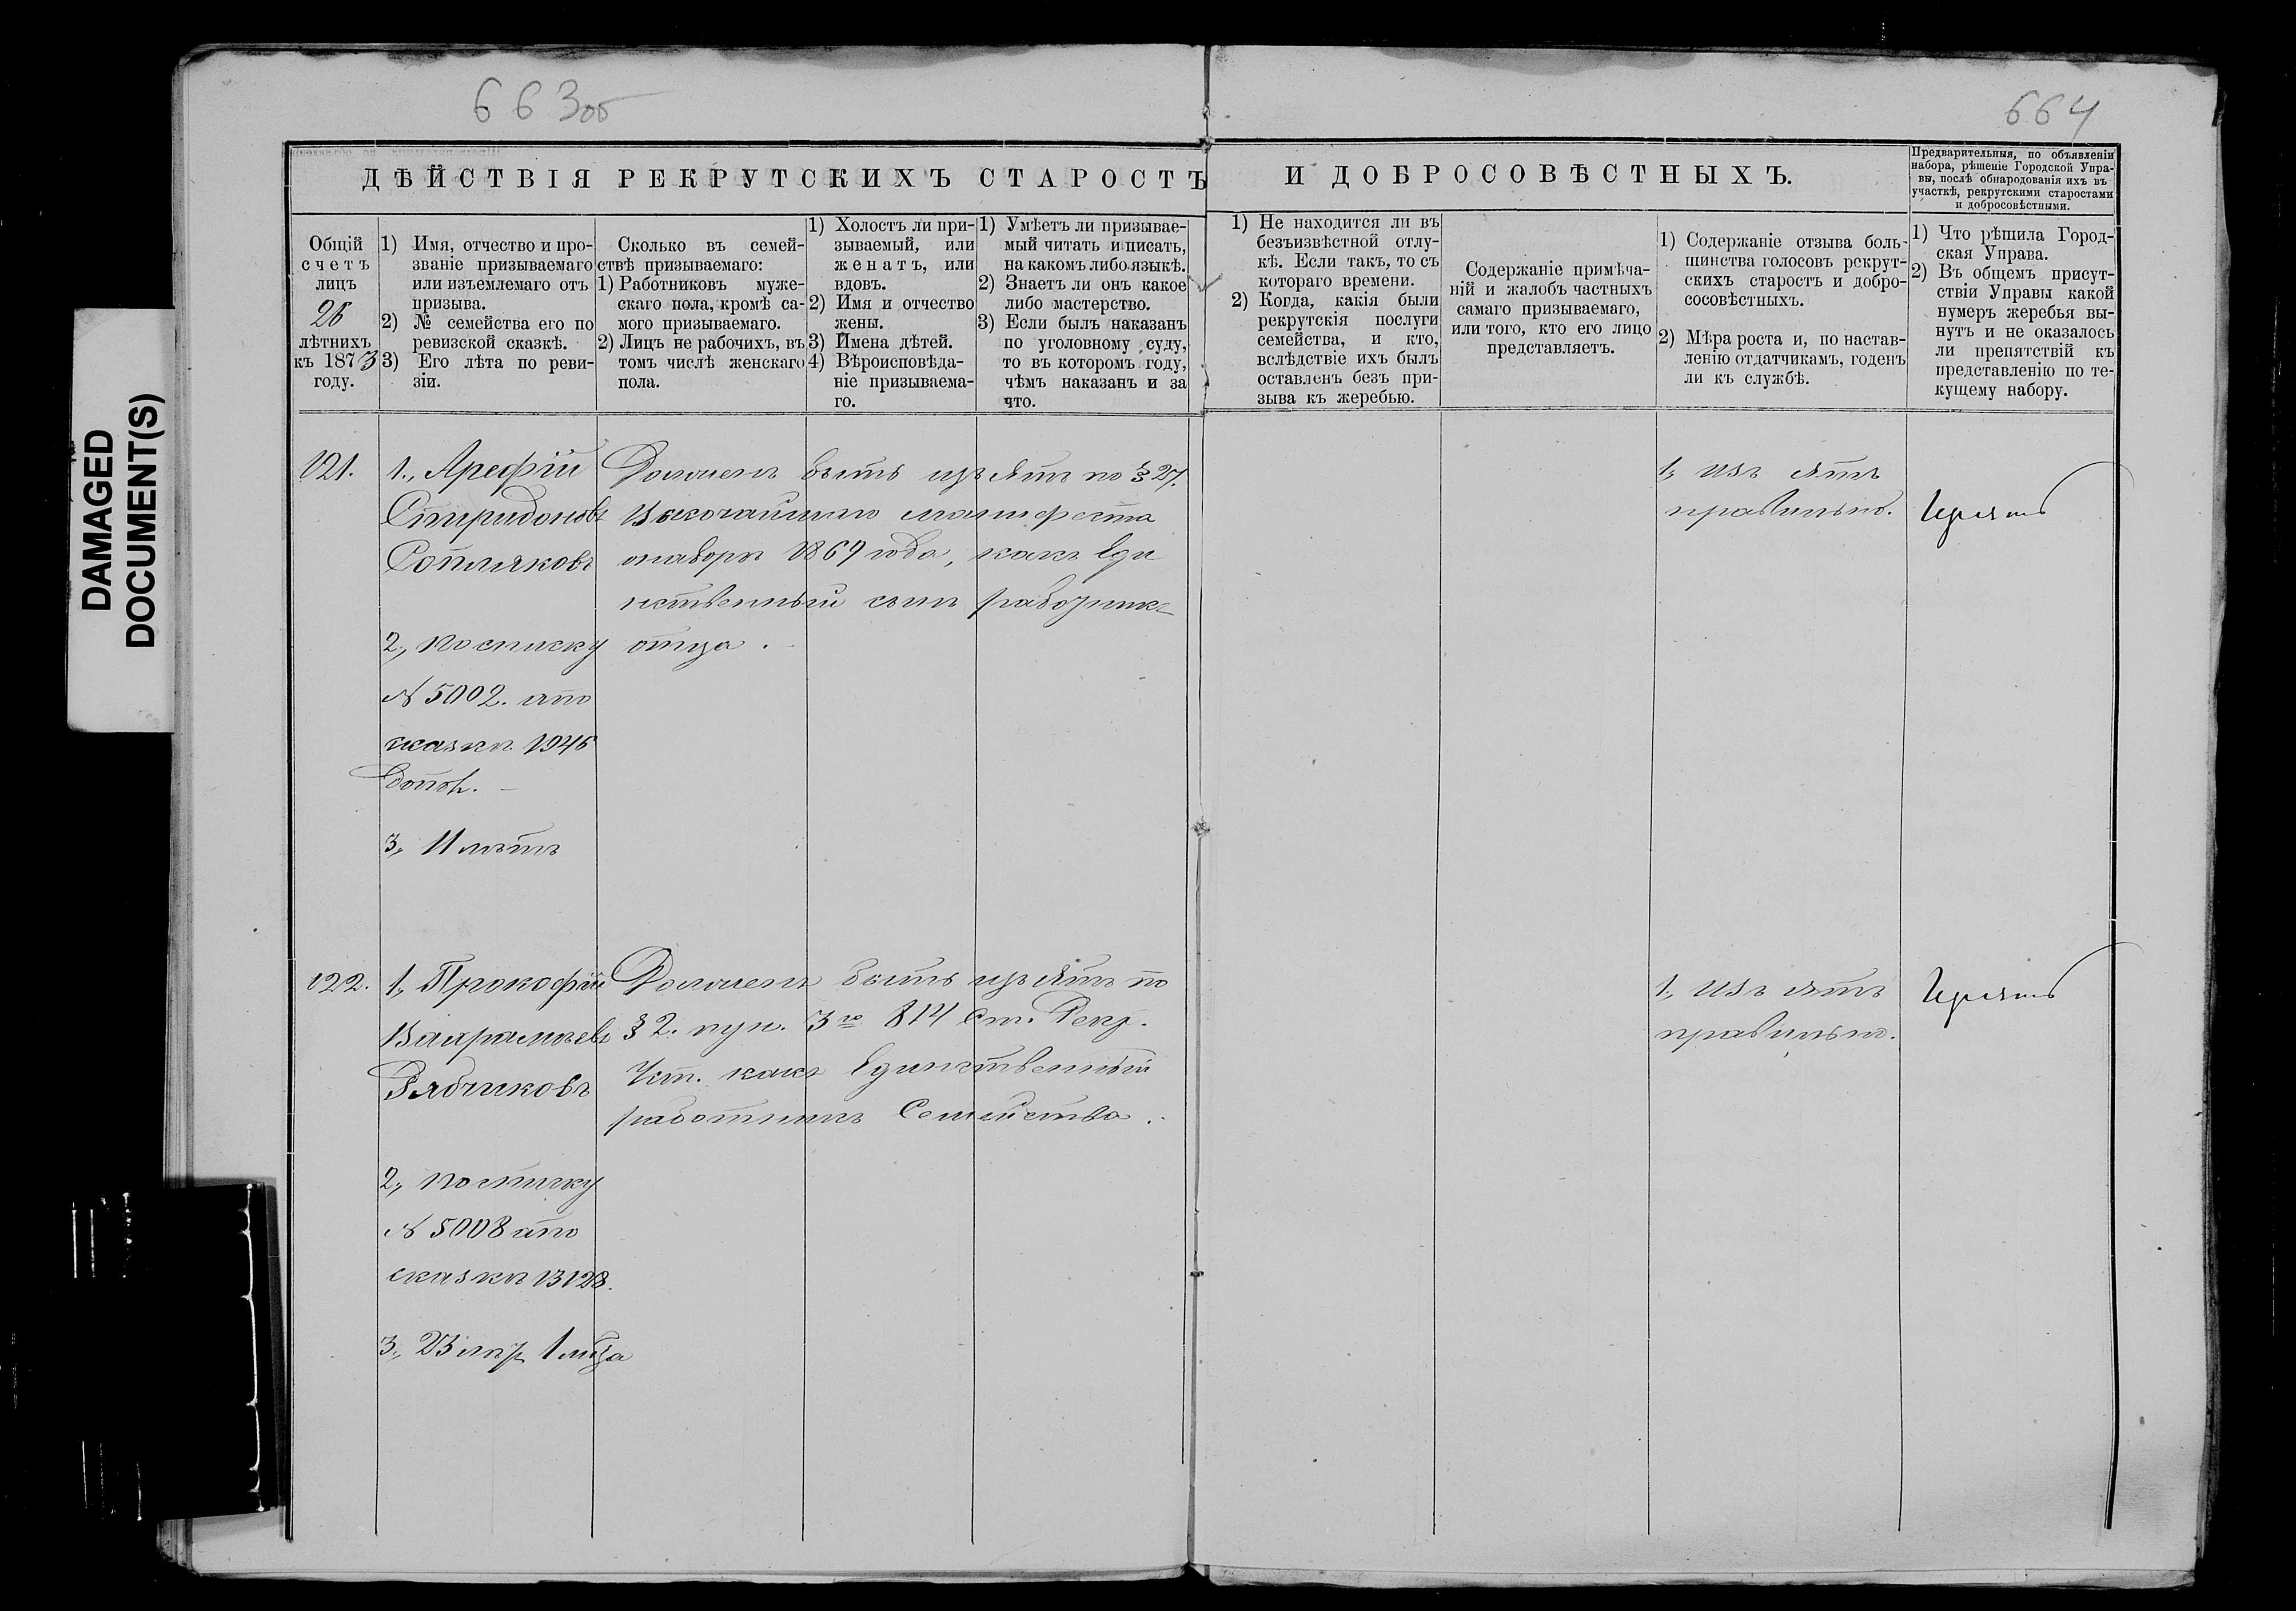 DAMAGED
DOCUMENT(S)
663об
664
ДѢЙСТВІЯ РЕКРУТСКИХЪ СТАРОСТЪ
И ДОБРОСОВѢСТНЫХЪ.
Предварительныя, по объявленіи
набора, рѣшеніе Городской Упра-
вы, послѣ обнародованія ихъ въ
участкѣ, рекрутскими старостами
и добросовѣстными.
Общій
счетъ
лицъ
26
лѣтнихъ
къ 1873
году.
1) Имя, отчество и про-
званіе призываемаго
или изъемлемаго отъ
призыва.
2) № семейства его по
ревизской сказкѣ.
3) Его лѣта по реви-
зіи.
Сколько въ семей-
ствѣ призываемаго:
1) Работниковъ муже-
скаго пола, кромѣ са-
мого призываемаго.
2) Лицъ не рабочихъ, въ
томъ числѣ женскаго
пола.
1) Холостъ ли при-
зываемый, или
женатъ, или
вдовъ.
2) Имя и отчество
жены.
3) Имена дѣтей.
4) Вѣроисповѣда-
ніе призываема-
го.
1) Умѣетъ ли призывае-
мый читать и писать,
на какомъ либо языкѣ.
2) Знаетъ ли онъ какое
либо мастерство.
3) Если былъ наказанъ
по уголовному суду,
то въ которомъ году,
чѣмъ наказанъ и за
что.
1) Не находится ли въ
безъизвѣстной отлу-
кѣ. Если такъ, то съ
котораго времени.
2) Когда, какія были
рекрутскія послуги
семейства, и кто,
вслѣдствіе ихъ былъ
оставленъ безъ при-
зыва къ жеребью.
Содержаніе примѣча-
ній и жалобъ частныхъ
самаго призываемаго,
или того, кто его лицо
представляетъ.
1) Содержаніе отзыва боль-
шинства голосовъ рекрут-
скихъ старостъ и добро-
сосовѣстныхъ.
2) Мѣра роста и, по настав-
ленію отдатчикамъ, годенъ
ли къ службѣ.
1) Что рѣшила Город-
ская Управа.
2) Въ общемъ присут-
ствіи Управы какой
нумеръ жеребья вы-
нутъ и не оказалось
ли препятствій къ
представленію по те-
кущему набору.
121.
1., Арефій
Спиридоновъ
2., по списку
№ 5002. а по
сказкѣ 1946
3., 11 лѣтъ
Долженъ быть изъятъ по § 27.
Высочайшаго манифеста
о наборѣ 1869 года, какъ еди
нственный сынъ работник-
отца.
1., изъятъ
правильно.
Изъять
122.
1., Прокофій
Рябчиковъ
2., по списку
№ 5008 а по
сказкѣ 13128.
3., 23 лѣт. 1 мѣца
Долженъ быть изъятъ по
§ 2. пун. 3го 814 ст. Рекр.
Уст. какъ единственный
работникъ семейства.
1., изъятъ
правильно.
Изъять